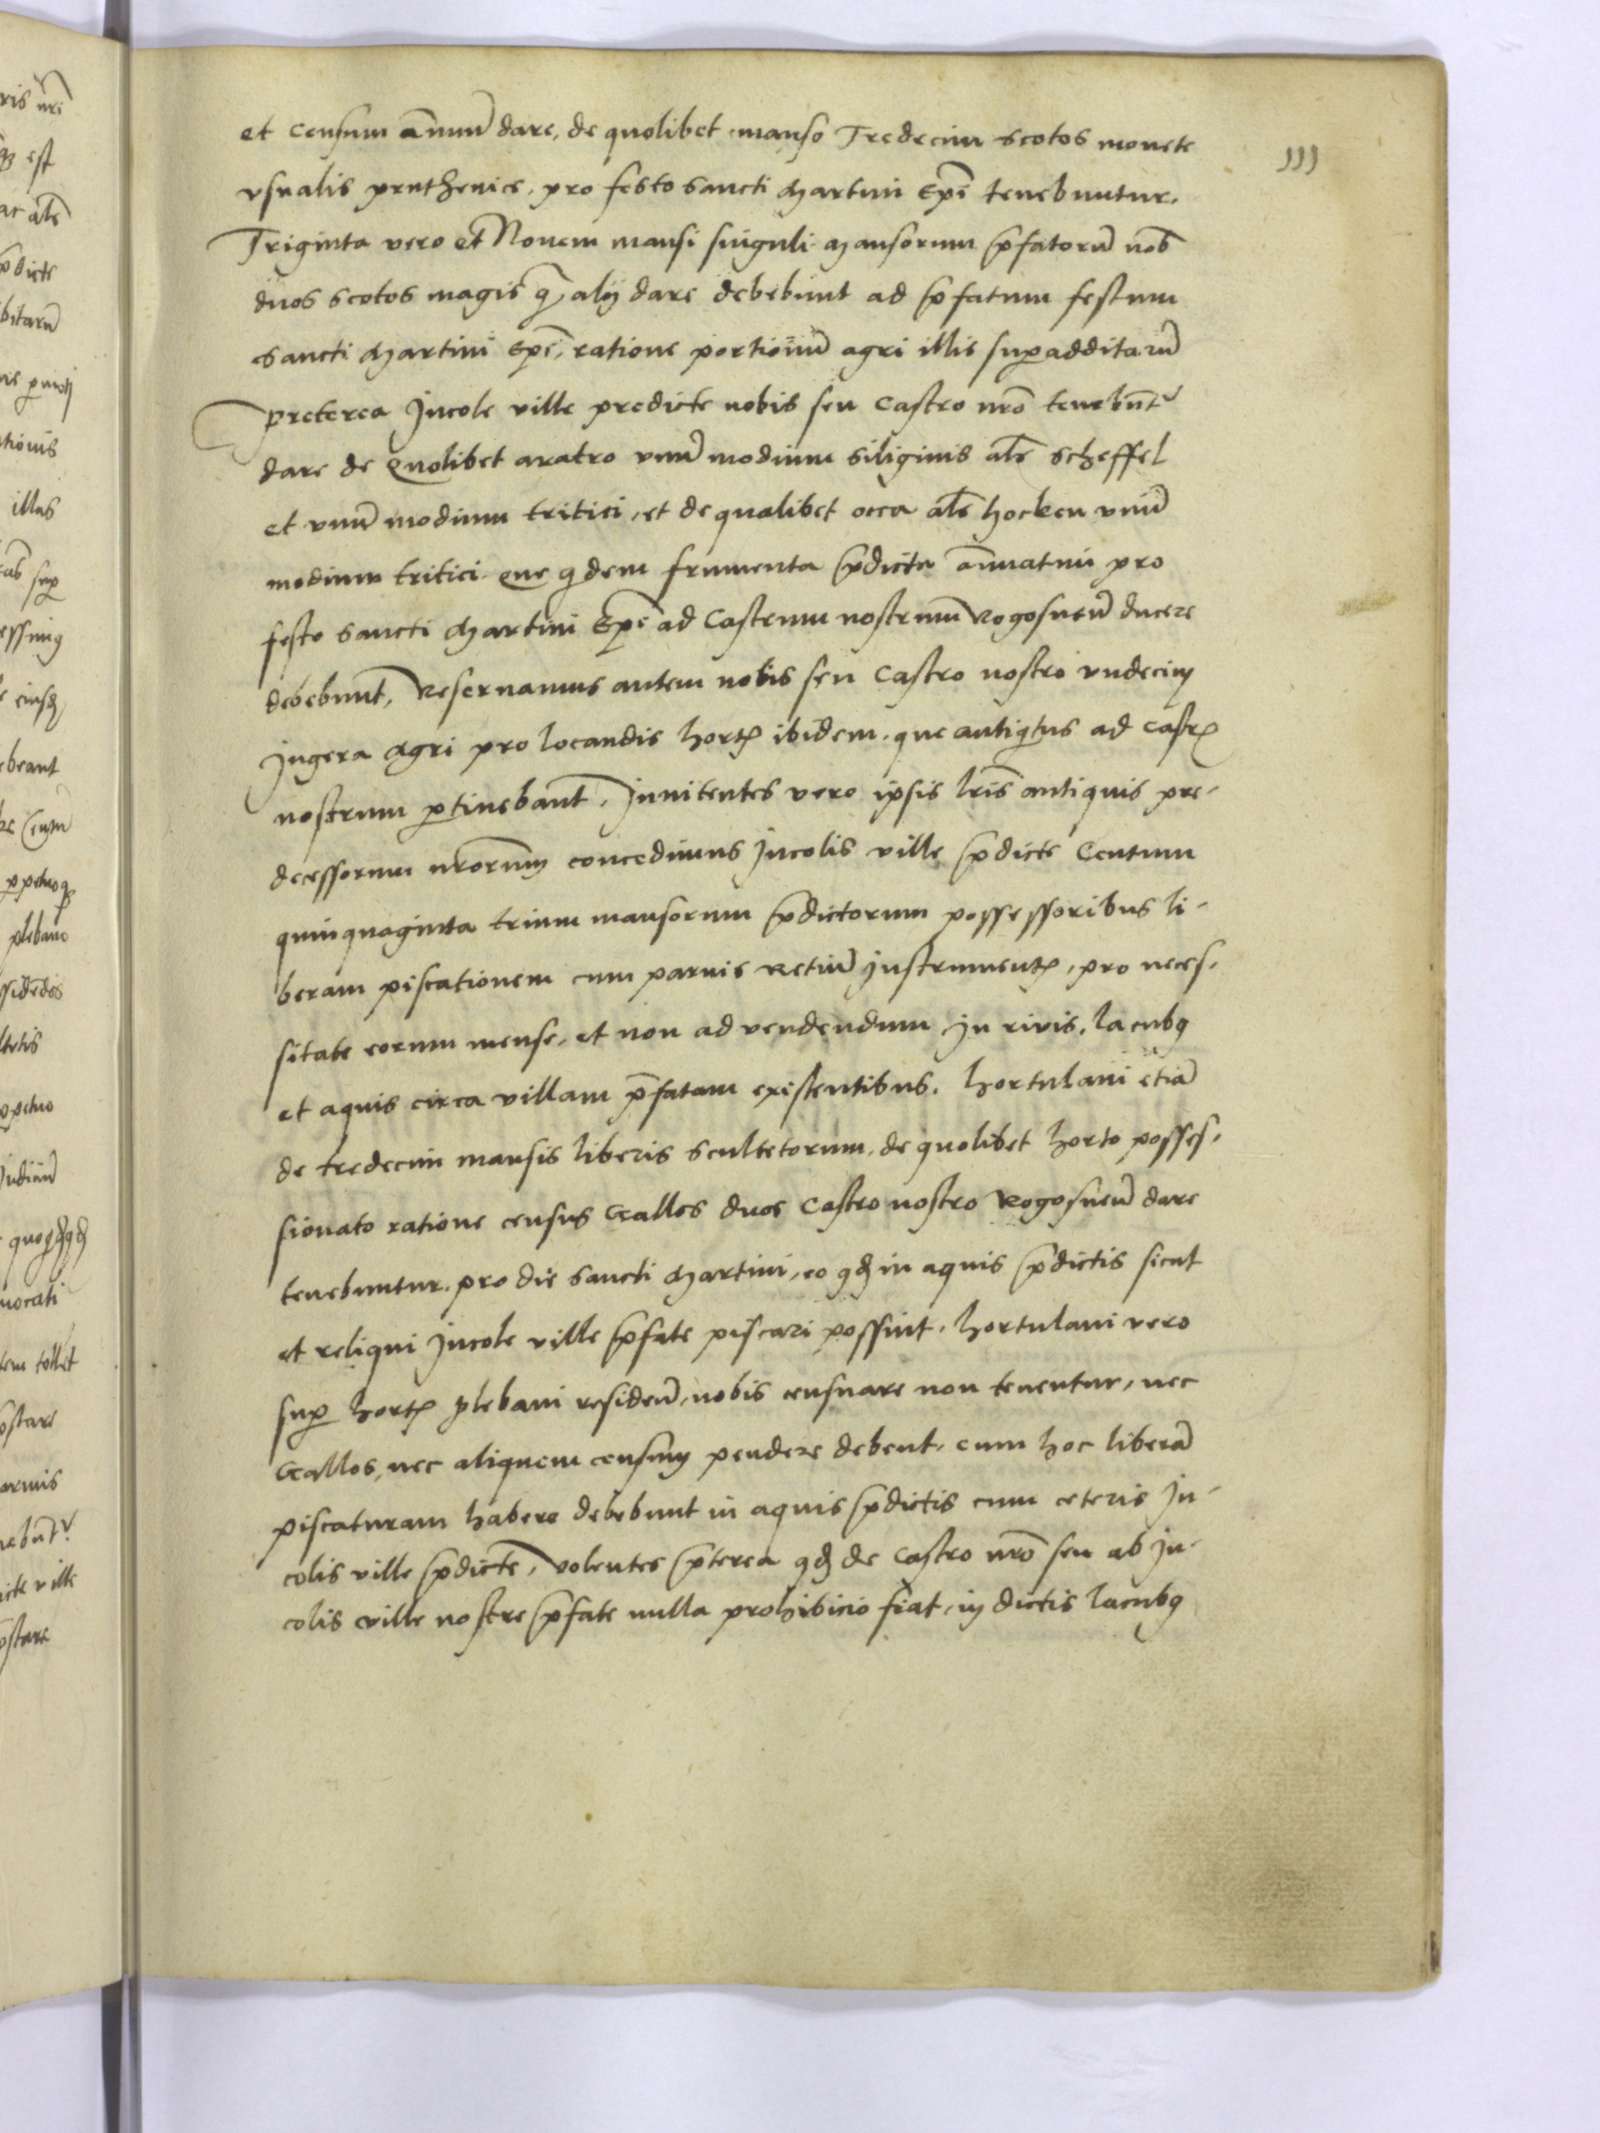 JJJ
et censum an̄nuū dare, de quolibet manso Tredecim scotos monete
vsualis pruthenice, pro festo sancti Martini Ep̄i tenebuntur.
Triginta vero et Nouem mansi singuli mansorum p̄fatorū nob̄
duos scotos magis q̄ alij dare debebunt ad p̄fatum festum
sancti Martini Ep̄i, ratione portionū agri illis superadditarū
Preterea Incole ville predicte nobis seu Castro nr̄o tenebūt
dare de Quolibet aratro vnū modium siliginis als̄ scheffel
et vnū modium tritici, et de qualibet occa als̄ hocken vnū
modium tritici. Que q̇dem frumenta p̄dicta an̄uatim pro
festo sancti Martini Ep̄i ad Castrum nostrum Rogosneū ducere
debebunt, Reseruamus autem nobis seu Castro nostro vndecim
Jugera Agri pro locandis hortꝭ ibidem, que antiq̇tus ad Castꝝ
nostrum ꝑtinebant. Innitentes vero ipsis lr̄is antiquis pre-
decessorum nr̄orum concedimus Incolis ville p̄dicte Centum
quinquaginta trium mansorum p̄dictorum possessoribus li-
beram piscationem cum paruis Retiū Instrumentꝭ, pro neces-
sitate eorum mense, et non ad vendendum in riuis, lacubꝰ
et aquis circa villam p̄fatam existentibus. hortulani etiā
de tredecim mansis liberis scultetorum, de quolibet horto posses-
sionato ratione census Gallos duos Castro nostro Rogosneū dare
tenebuntur pro die sancti Martini, eo qđ in aquis p̄dictis sicut
et reliqui Incole ville p̄fate piscari possint. hortulani vero
suꝑ hortꝭ plebani resideñ, nobis censuare non tenentur, nec
Gallos, nec aliquem censum pendere debent, cum hoc liberā
piscaturam habere debebunt in aquis p̄dictis cum ceteris In-
colis ville p̄dicte, Volentes p̄terea qđ de Castro nr̄o seu ab In-
colis ville nostre p̄fate nulla prohibicio fiat, in dictis lacubꝰ